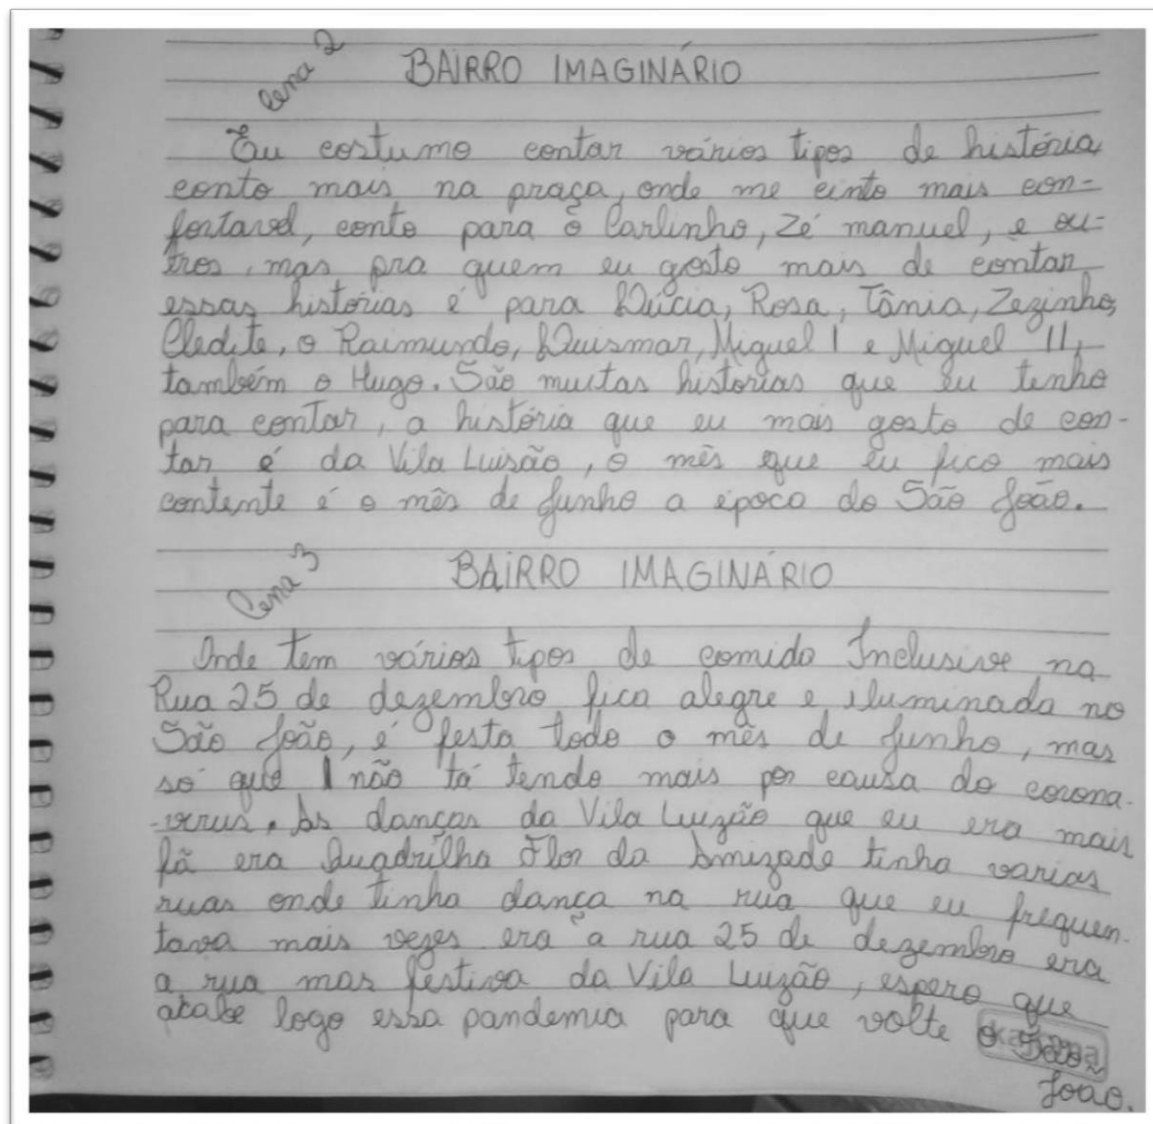 Cena 2
BAIRRO IMAGINÁRIO
Eu costumo contar vários tipos de história
conto mais na praça, onde me cinto mais con-
fortavel, conto para o Carlinho, Zé manuel, e ou-
tros, mas pra quem eu gosto mais de contar
essas histórias é para Lúcia, Rosa, Tânia, Zezinho,
Cledite, o Raimundo, Luismar, Miguel I e Miguel II,
também o Hugo. São muitas histórias que eu tenho
para contar, a história que eu mais gosto de con-
tar é da Vila Luisão, o mês que eu fico mais
contente é o mês de Junho a época do São João.
Cena 3
BAIRRO IMAGINÁRIO
Onde tem vários tipos de comida Inclusive na
Rua 25 de dezembro fica alegre e iluminada no
São João, é festa todo o mês de Junho, mas
só que não tá tendo mais por causa do corona-
-virus. As danças da Vila Luizão que eu era mais
fã era Quadrilha Flor da Amizade tinha varias
ruas onde tinha dança na rua que eu frequen-
tava mais vezes era a rua 25 de dezembro era
a rua mas festiva da Vila Luizão, espero que
acabe logo essa pandemia para que volte o São
João.